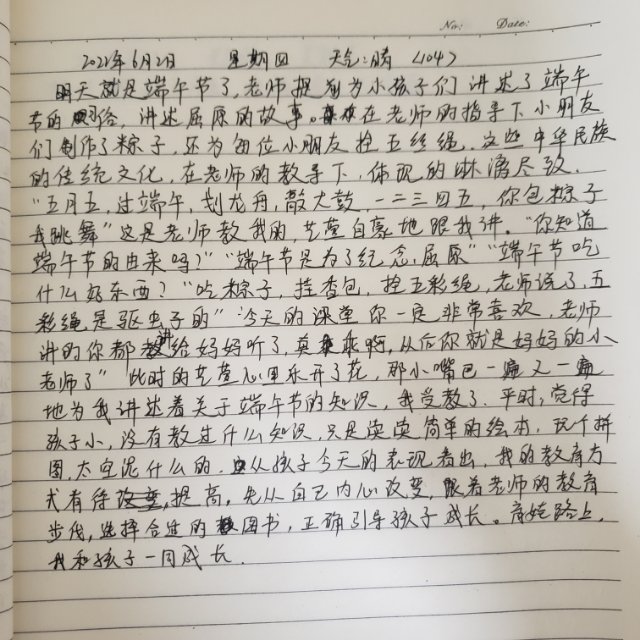 No: Date:
2022年6月2日 星期四 天气:晴 (104)
明天就是端午节了,老师提前为小孩子们讲述了端午
节的习俗,讲述屈原的故事。在老师的指导下小朋友
们制作了粽子,还为每位小朋友拴五丝绳,这些中华民族
的传统文化,在老师的教导下,体现的淋漓尽致.
"五月五,过端午,划龙舟,敲大鼓,一二三四五,你包粽子
我跳舞"这是老师教我的,芝萱自豪地跟我讲。"你知道
端午节的由来吗?""端午节是为了纪念屈原""端午节吃
什么好东西?""吃粽子,挂香包,拴五彩绳,老师说了,五
彩绳是驱虫子的"今天的课堂你一定非常喜欢,老师
讲的你都讲给妈妈听了,真乖啊,从后你就是妈妈的小
老师了"此时的芝萱心里乐开了花,那小嘴巴一遍又一遍
地为我讲述着关于端午节的知识,我受教了.平时,觉得
孩子小,没有教过什么知识,只是读读简单的绘本,玩个拼
图,太空泥什么的.从孩子今天的表现看出,我的教育方
式有待改变,提高,先从自己内心改变,跟着老师的教育
步伐,选择合适的图书,正确引导孩子成长。育娃路上,
我和孩子一同成长.